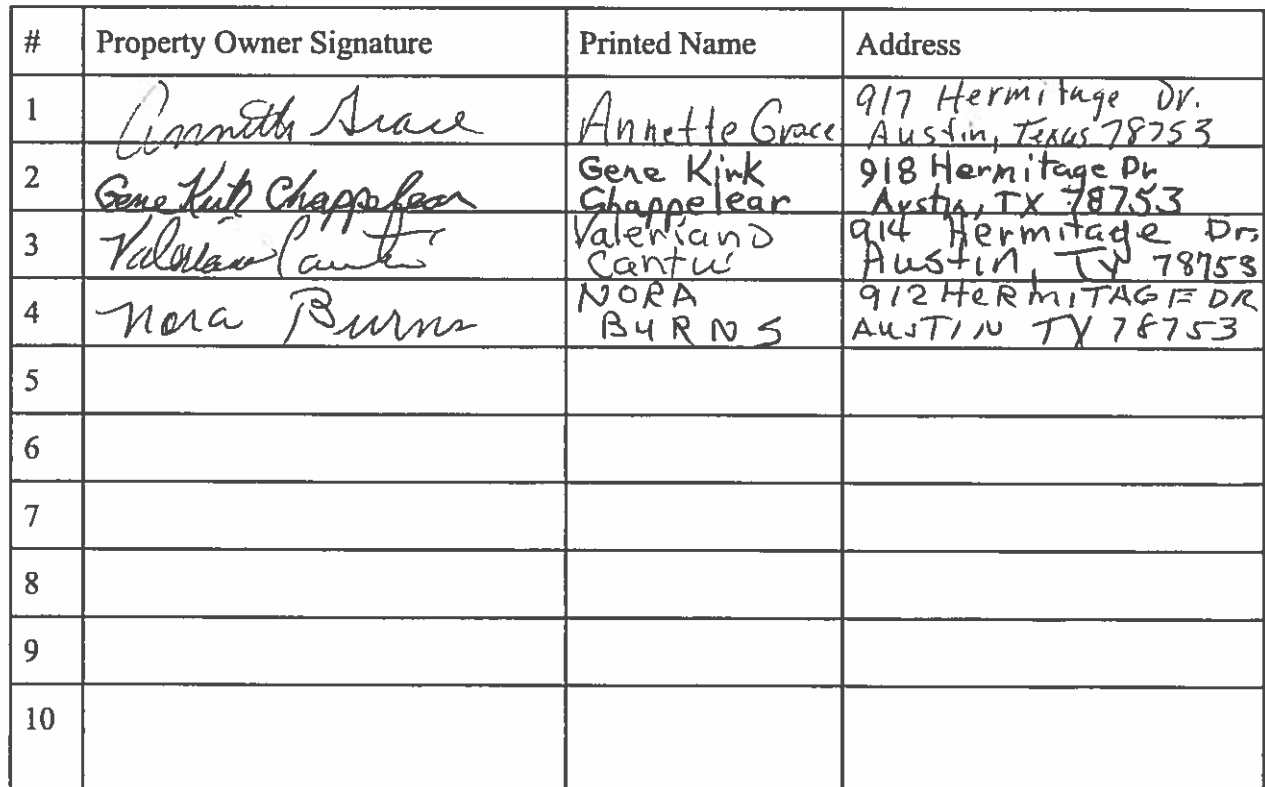 # Property Owner Signature Printed Name Address
1 Annette Grace Annette Grace 917 Hermitage Dr.
Austin, Texas 78753
2 Gene Kirk Chappelear Gene Kirk 918 Hermitage Dr
Chappelear Austin, TX 78753
3 Valeriano Cantu Valeriano 914 Hermitage Dr.
Cantú Austin, TX 78753
4 Nora Burns NORA 912 HERMITAGE DR
BURNS AUSTIN TX 78753
5
6
7
8
9
10